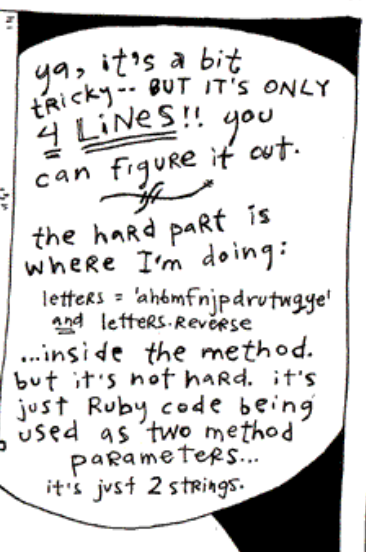 ya, it's a bit
tricky-- BUT IT'S ONLY
4 LiNes!! you
can figure it out.
the hard part is
where I'm doing:
letters = 'ahbmfnjpdrutwqye'
and letters.reverse
...inside the method.
but it's not hard. it's
just Ruby code being
used as two method
parameters...
it's just 2 strings.